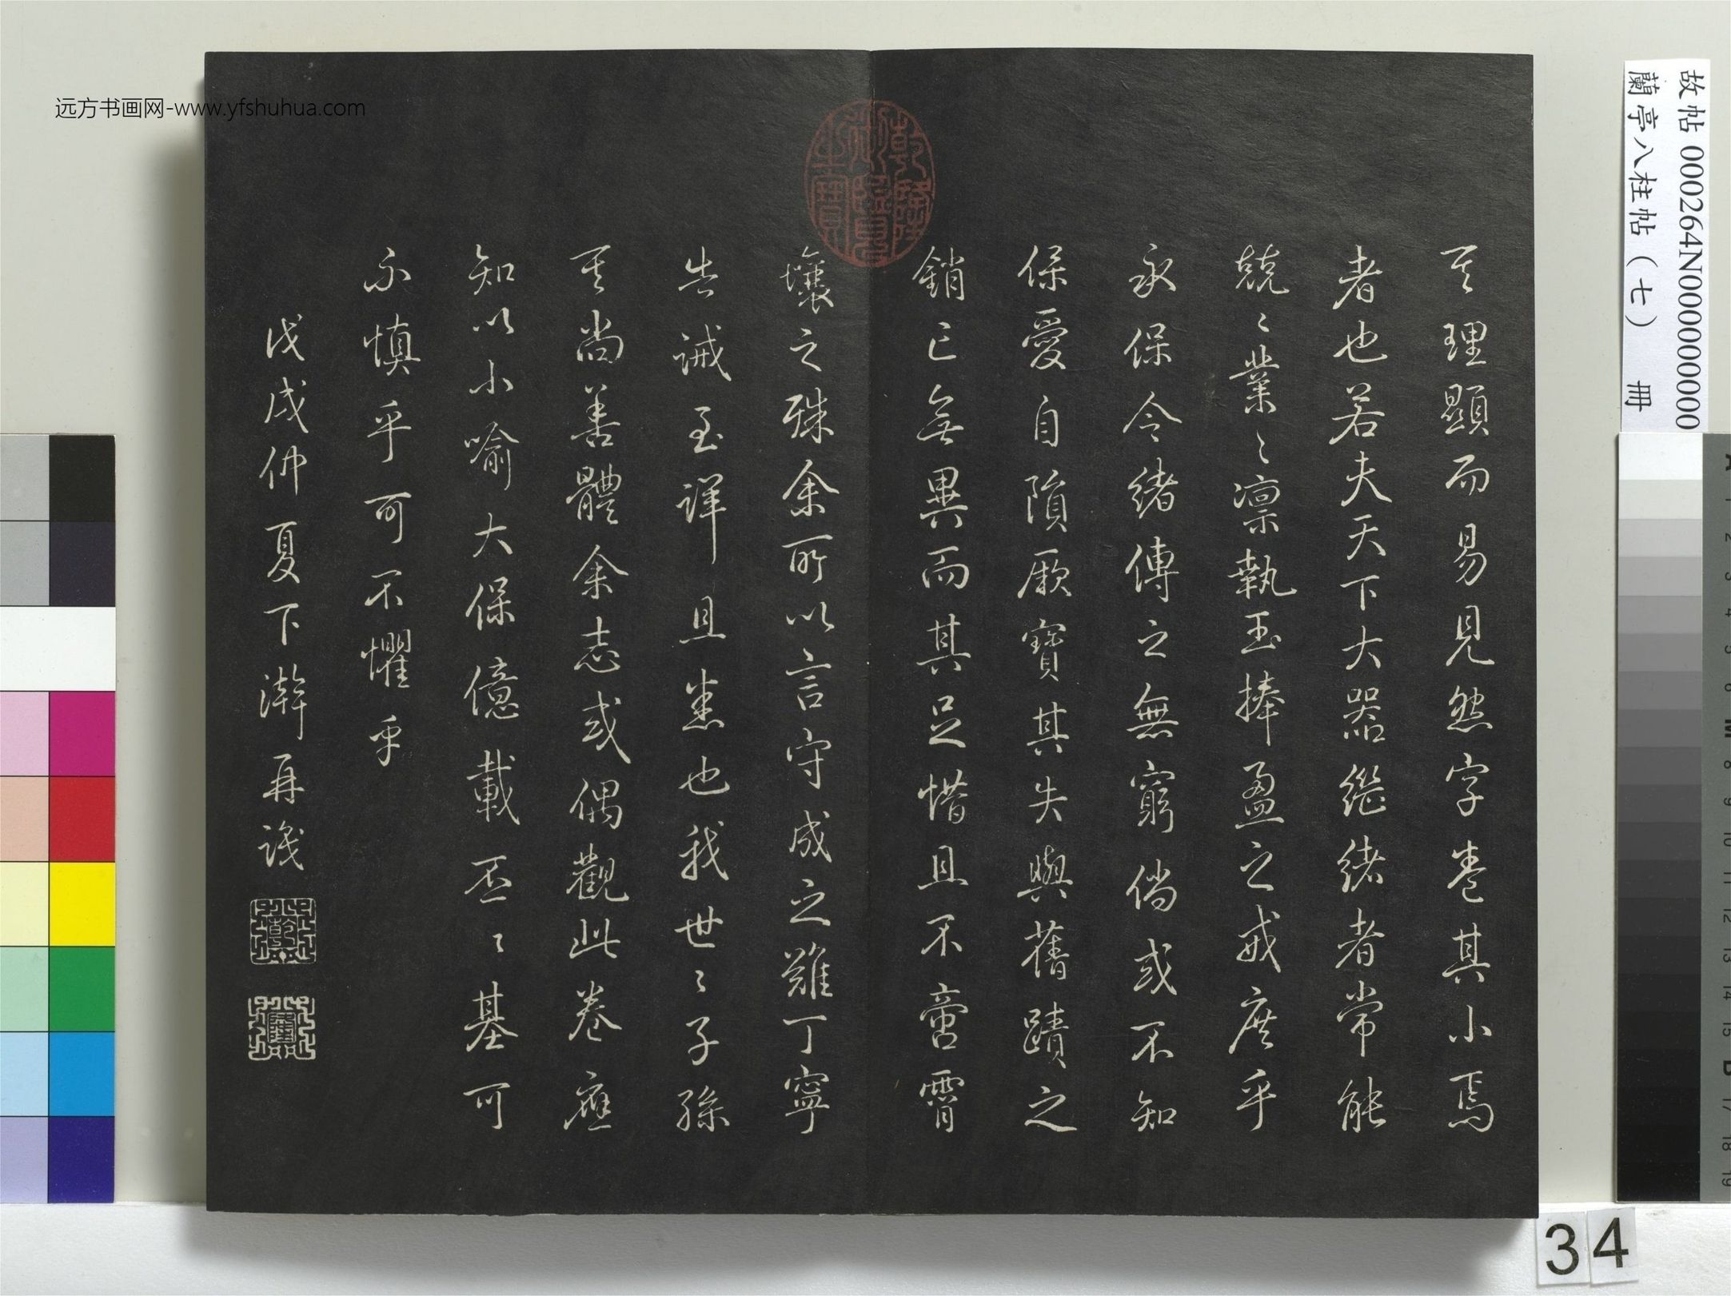 其理顯而易見然字卷其小焉
者也若夫天下大器繼緒者常能
兢〻業〻凛執玉捧盈之戒庶乎
永保令緒傳之無窮倘或不知
保愛自隕厥寶其失與舊蹟之
銷亡無異而其足惜且不啻霄
壤之殊余所以言守成之難丁寧
告誡至詳且悉也我世〻子孫
其尚善體余志或偶觀此卷應
知以小喻大保億載丕〻基可
不慎乎可不懼乎
戊戌仲夏下澣再識
乾隆御覽之寶
乾
隆
故帖 000264N000000000
蘭亭八柱帖(七) 冊
远方书画网-www.yfshuhua.com
34